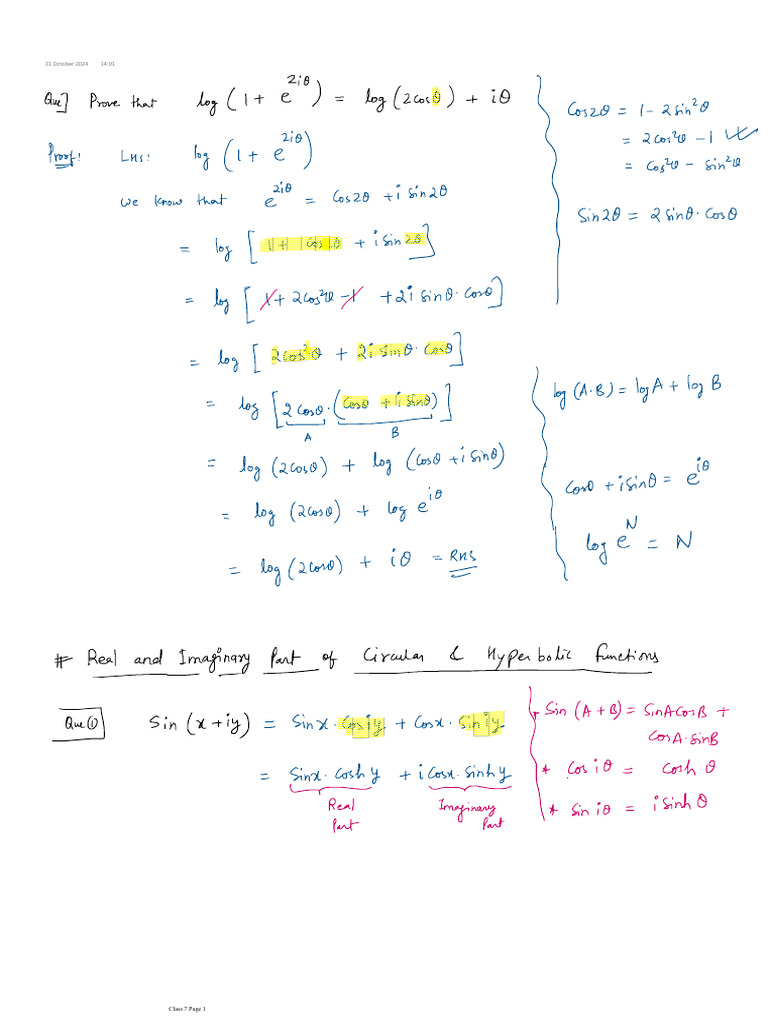 31 October 2024 14:01
Que] Prove that log (1 + e^{2iθ}) = log (2cosθ) + iθ
Proof: LHS: log (1 + e^{2iθ})
We know that e^{2iθ} = Cos2θ + i Sin2θ
= log [1 + Cos2θ + i Sin2θ]
= log [1 + 2cos²θ - 1 + 2i sinθ · cosθ]
= log [2cos²θ + 2i sinθ · cosθ]
= log [2 cosθ · (cosθ + i sinθ)]
A B
= log (2cosθ) + log (cosθ + i sinθ)
= log (2cosθ) + log e^{iθ}
= log (2cosθ) + iθ = RHS
Cos2θ = 1 - 2 sin²θ
= 2cos²θ - 1
= Cos²θ - Sin²θ
Sin2θ = 2 Sinθ · Cosθ
log (A·B) = log A + log B
Cosθ + i Sinθ = e^{iθ}
log e^N = N
# Real and Imaginary Part of Circular & Hyperbolic Functions
Que① Sin (x + iy) = Sinx · Cosiy + Cosx · Siniy
= Sinx · Coshy + i Cosx · Sinhy
Real Part
Imaginary Part
Sin (A + B) = SinA CosB +
CosA · SinB
* Cos iθ = Cosh θ
* Sin iθ = i Sinh θ
Class 7 Page 1